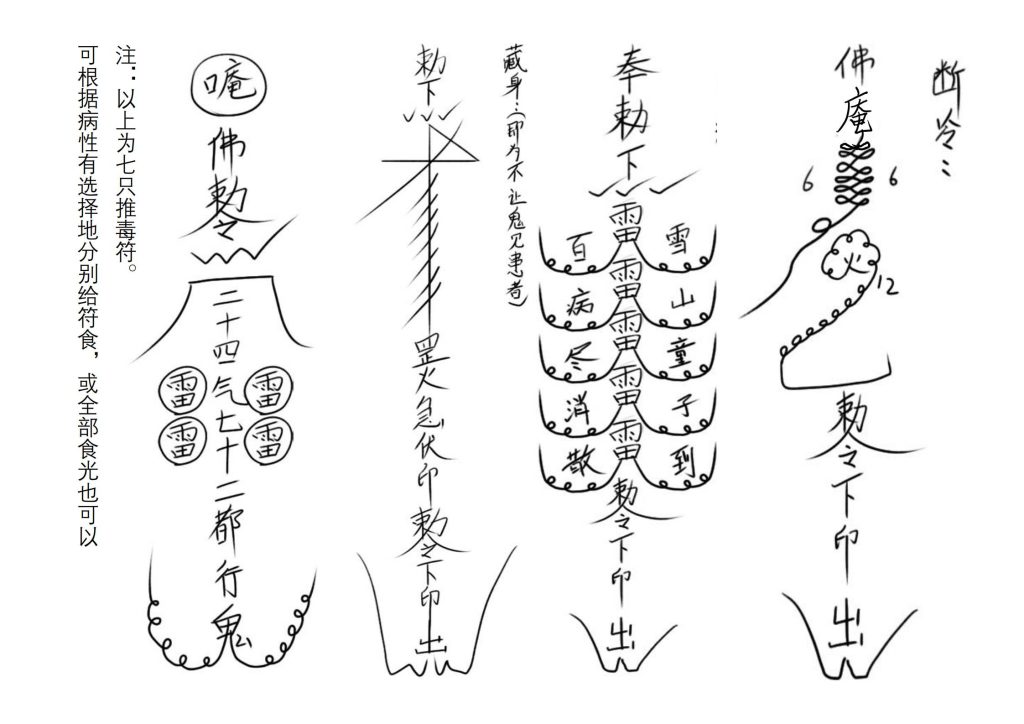 断冷:
佛
庵
6 6
火
12
勅令下印
出
奉勅下
雷雷雷雷雷
雪山童子到
百病尽消散
勅令下印
出
藏身:(即为不让鬼见患者)
勅下
罡火急伏印勅令下印
出
唵
佛勅令
二十四气七十二都行鬼
雷雷
雷雷
注：以上为七只推毒符。
可根据病性有选择地分别给符食，或全部食光也可以